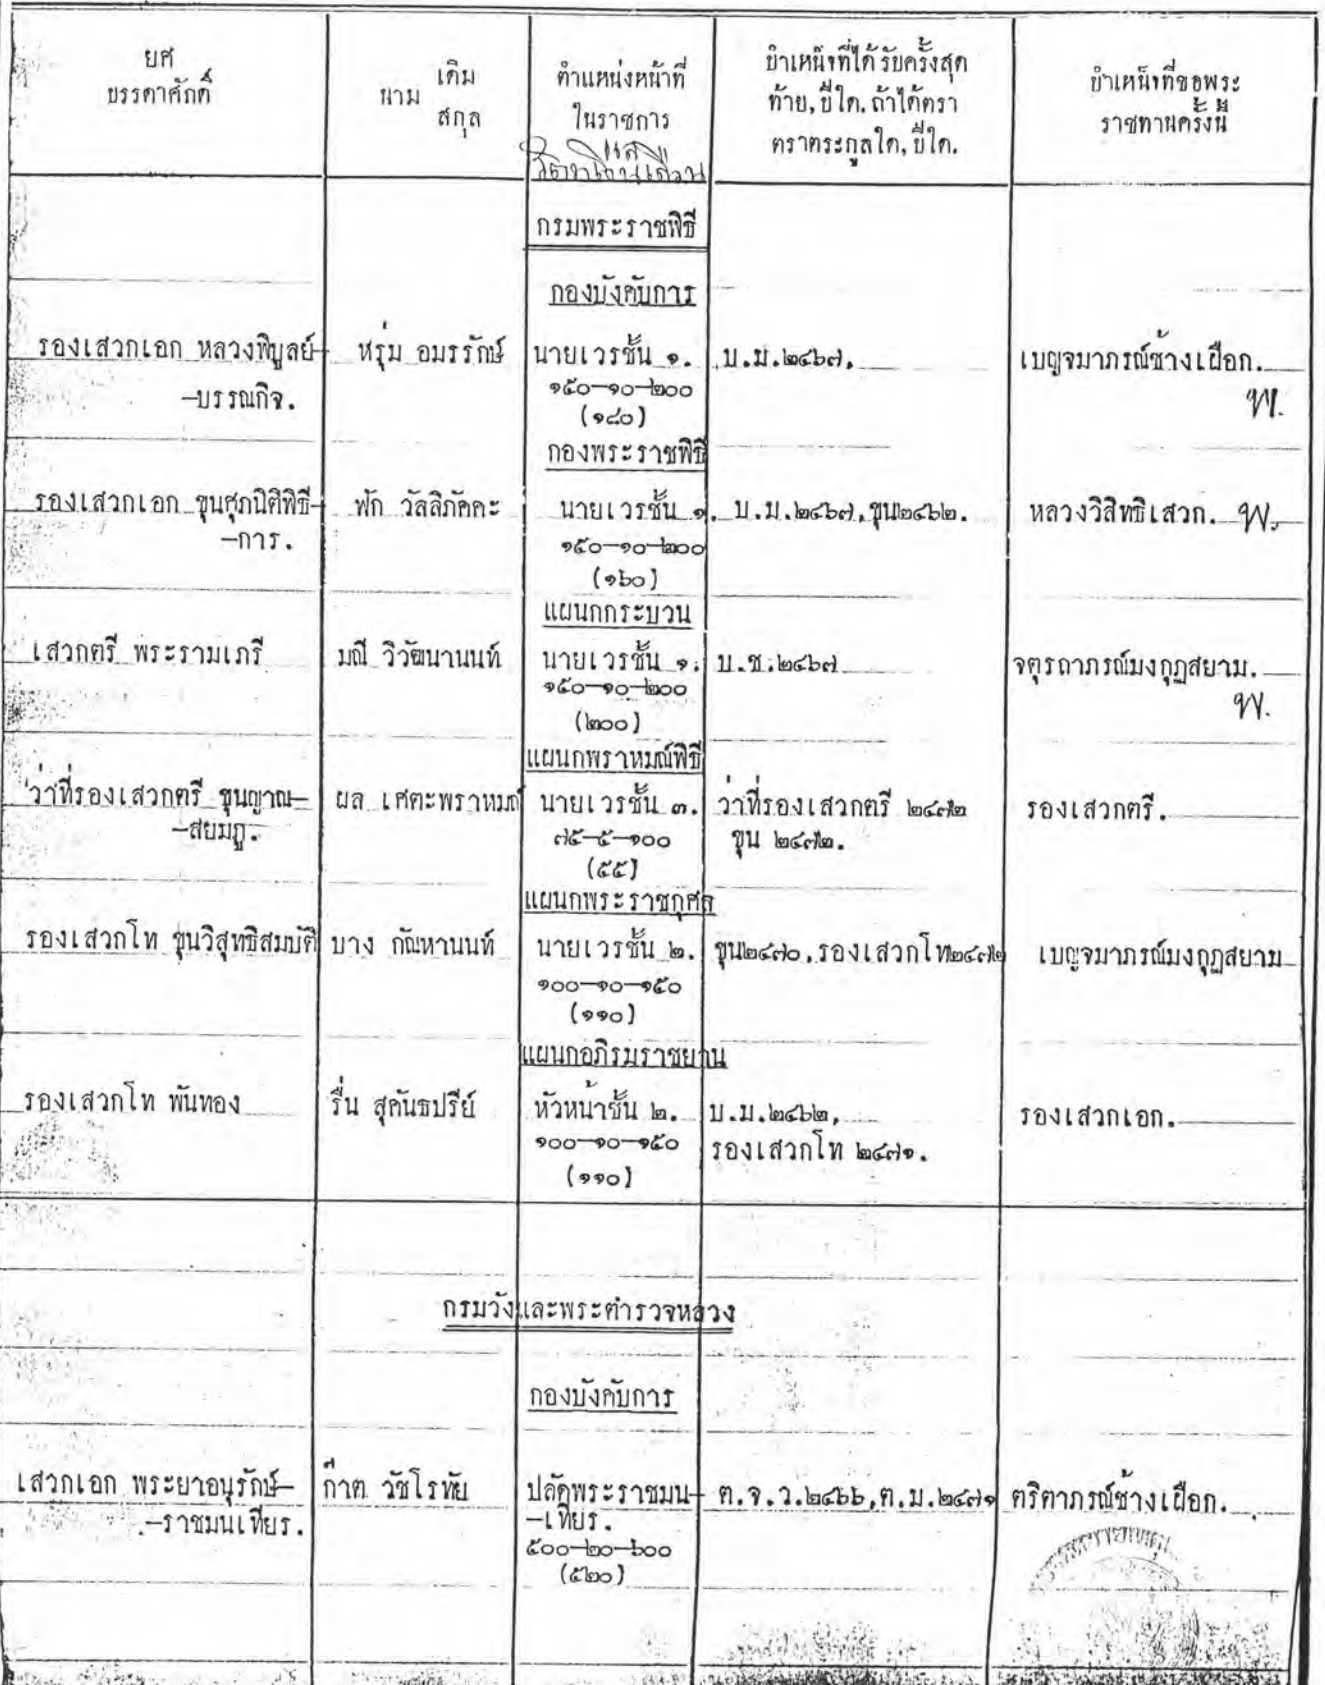 ยศ
บรรดาศักดิ์
นาม
เดิม
สกุล
ตำแหน่งหน้าที่
ในราชการ
บำเหน็จที่ได้รับครั้งสุด
ท้าย, ปีใด. ถ้าได้ตรา
ตราตระกูลใด, ปีใด.
บำเหน็จที่ขอพระ
ราชทานครั้งนี้
กรมพระราชพิธี
กองบังคับการ
รองเสวกเอก หลวงพิบูลย์-
-บรรณกิจ.
หรุ่ม อมรรักษ์
นายเวรชั้น ๑.
๑๕๐-๑๐-๒๐๐
(๑๘๐)
บ.ม.๒๔๖๗.
เบญจมาภรณ์ช้างเผือก.
พ.
กองพระราชพิธี
รองเสวกเอก ขุนศุภนิติพิธี-
-การ.
ฟัก วัลลิภัคคะ
นายเวรชั้น ๑.
๑๕๐-๑๐-๒๐๐
(๑๖๐)
บ.ม.๒๔๖๗, ขุน๒๔๖๒.
หลวงวิสิทธิเสวก. พ.
แผนกกระบวน
เสวกตรี พระรามเภรี
มณี วิวัฒนานนท์
นายเวรชั้น ๑.
๑๕๐-๑๐-๒๐๐
(๒๐๐)
บ.ช.๒๔๖๗
จตุรถาภรณ์มงกุฎสยาม.
พ.
แผนกพราหมณ์พิธี
ว่าที่รองเสวกตรี ขุนญาณ-
-สยมภู.
ผล เศตะพราหมณ์
นายเวรชั้น ๓.
๗๕-๕-๑๐๐
(๕๕)
ว่าที่รองเสวกตรี ๒๔๗๒
ขุน ๒๔๗๒.
รองเสวกตรี.
แผนกพระราชกุศล
รองเสวกโท ขุนวิสุทธิสมบัติ
บาง กัณหานนท์
นายเวรชั้น ๒.
๑๐๐-๑๐-๑๕๐
(๑๑๐)
ขุน๒๔๗๐, รองเสวกโท๒๔๗๒
เบญจมาภรณ์มงกุฎสยาม
แผนกอภิรมราชยาน
รองเสวกโท พันทอง
รื่น สุคันธปรีย์
หัวหน้าชั้น ๒.
๑๐๐-๑๐-๑๕๐
(๑๑๐)
บ.ม.๒๔๖๒,
รองเสวกโท ๒๔๗๑.
รองเสวกเอก.
กรมวังและพระตำรวจหลวง
กองบังคับการ
เสวกเอก พระยาอนุรักษ์-
-ราชมนเทียร.
ก๊าต วัชโรทัย
ปลัดพระราชมน-
-เทียร.
๕๐๐-๒๐-๖๐๐
(๕๒๐)
ต.จ.ว.๒๔๖๖, ต.ม.๒๔๗๑
ตริตาภรณ์ช้างเผือก.